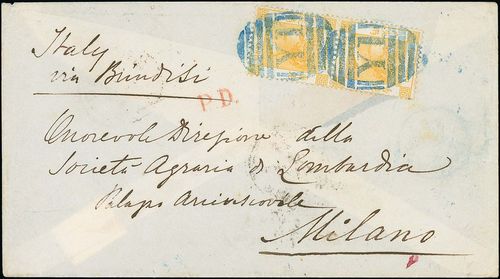 Italy
via Brindisi
P.D.
Onorevole Direzione della
Società Agraria di Lombardia
Palazzo Arcivescovile
Milano